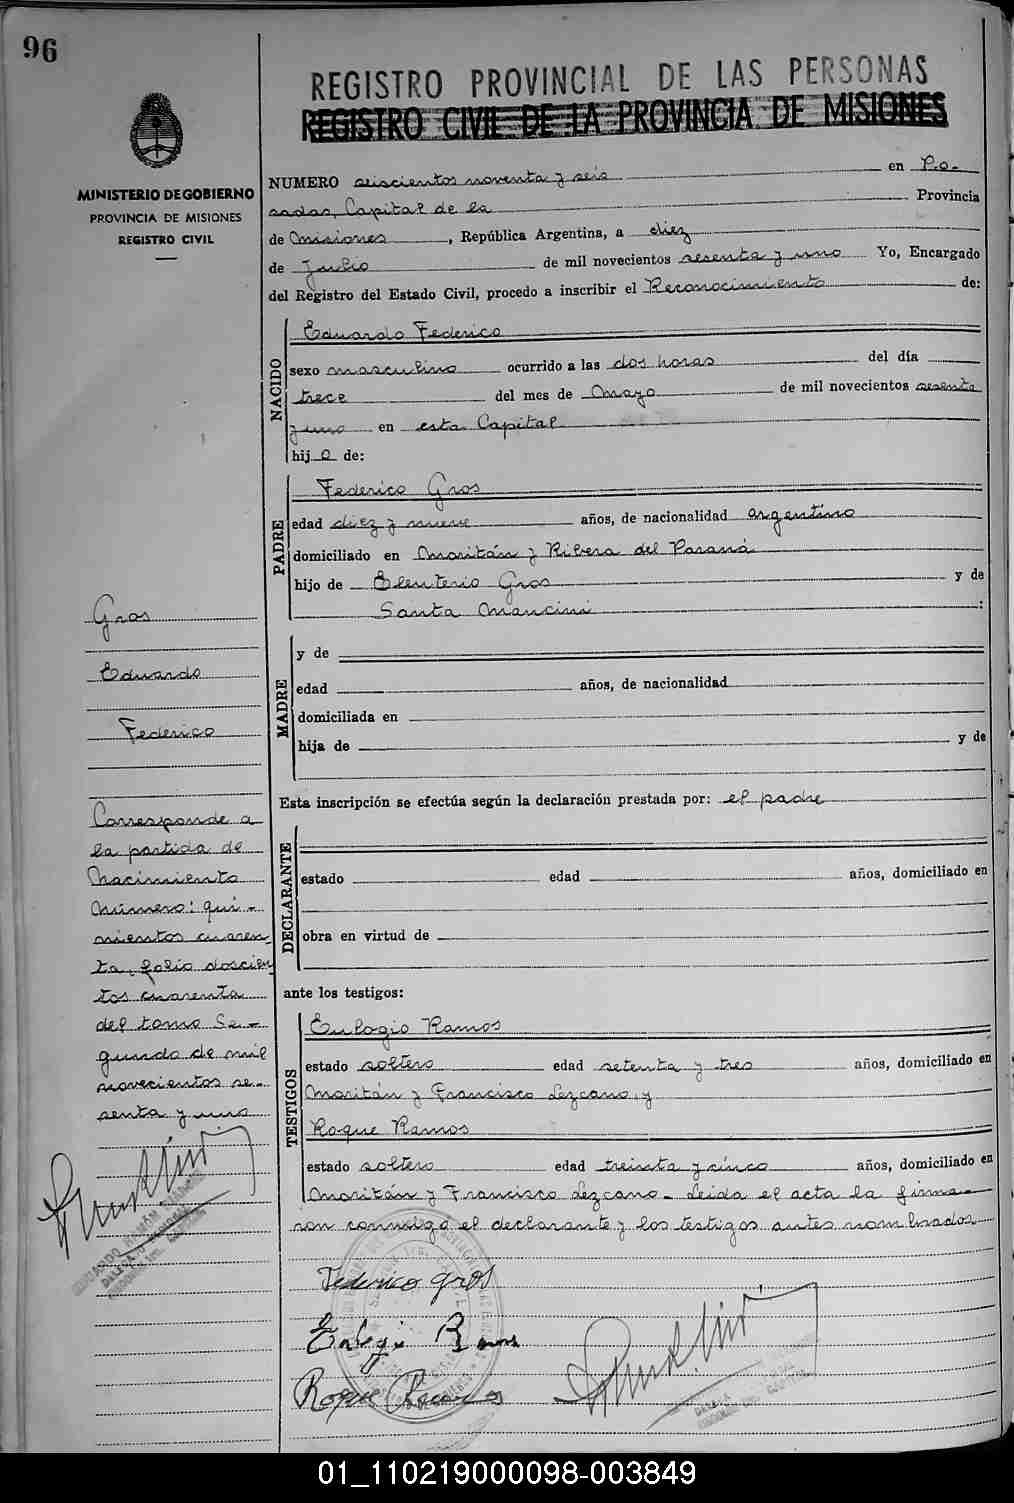 96
REGISTRO PROVINCIAL DE LAS PERSONAS
REGISTRO CIVIL DE LA PROVINCIA DE MISIONES
MINISTERIO DE GOBIERNO
PROVINCIA DE MISIONES
REGISTRO CIVIL
NUMERO seiscientos noventa y seis en Po-
sadas, Capital de la Provincia
de Misiones, República Argentina, a diez
de Julio de mil novecientos sesenta y uno Yo, Encargado
del Registro del Estado Civil, procedo a inscribir el Reconocimiento de:
NACIDO
Eduardo Federico
sexo masculino ocurrido a las dos horas del día
trece del mes de Mayo de mil novecientos sesenta
y uno en esta Capital
hijo de:
PADRE
Federico Gros
edad diez y nueve años, de nacionalidad argentino
domiciliado en Moritán y Ribera del Paraná
hijo de Eleuterio Gros y de
Santa Mancini :
MADRE
y de
edad años, de nacionalidad
domiciliada en
hija de y de
Esta inscripción se efectúa según la declaración prestada por: el padre
DECLARANTE
estado edad años, domiciliado en
obra en virtud de
ante los testigos:
TESTIGOS
Eulogio Ramos
estado soltero edad setenta y tres años, domiciliado en
Moritán y Francisco Lezcano, y
Roque Ramos
estado soltero edad treinta y cinco años, domiciliado en
Moritán y Francisco Lezcano - Leida el acta la firma-
ron conmigo el declarante y los testigos antes nombrados
Federico Gros
Eulogio Ramos
Roque Ramos
Gros
Eduardo
Federico
Corresponde a
la partida de
Nacimiento
Número: qui-
nientos cuaren-
ta, folio doscien
tos cuarenta
del tomo Se-
gundo de mil
novecientos se-
senta y uno
01_110219000098-003849